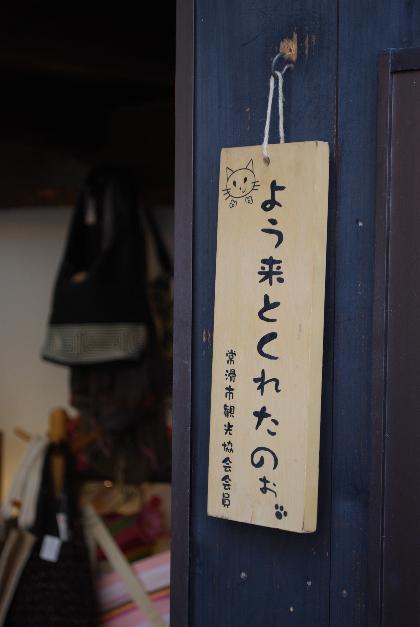 よう来とくれたのぉ
常滑市観光協会会員